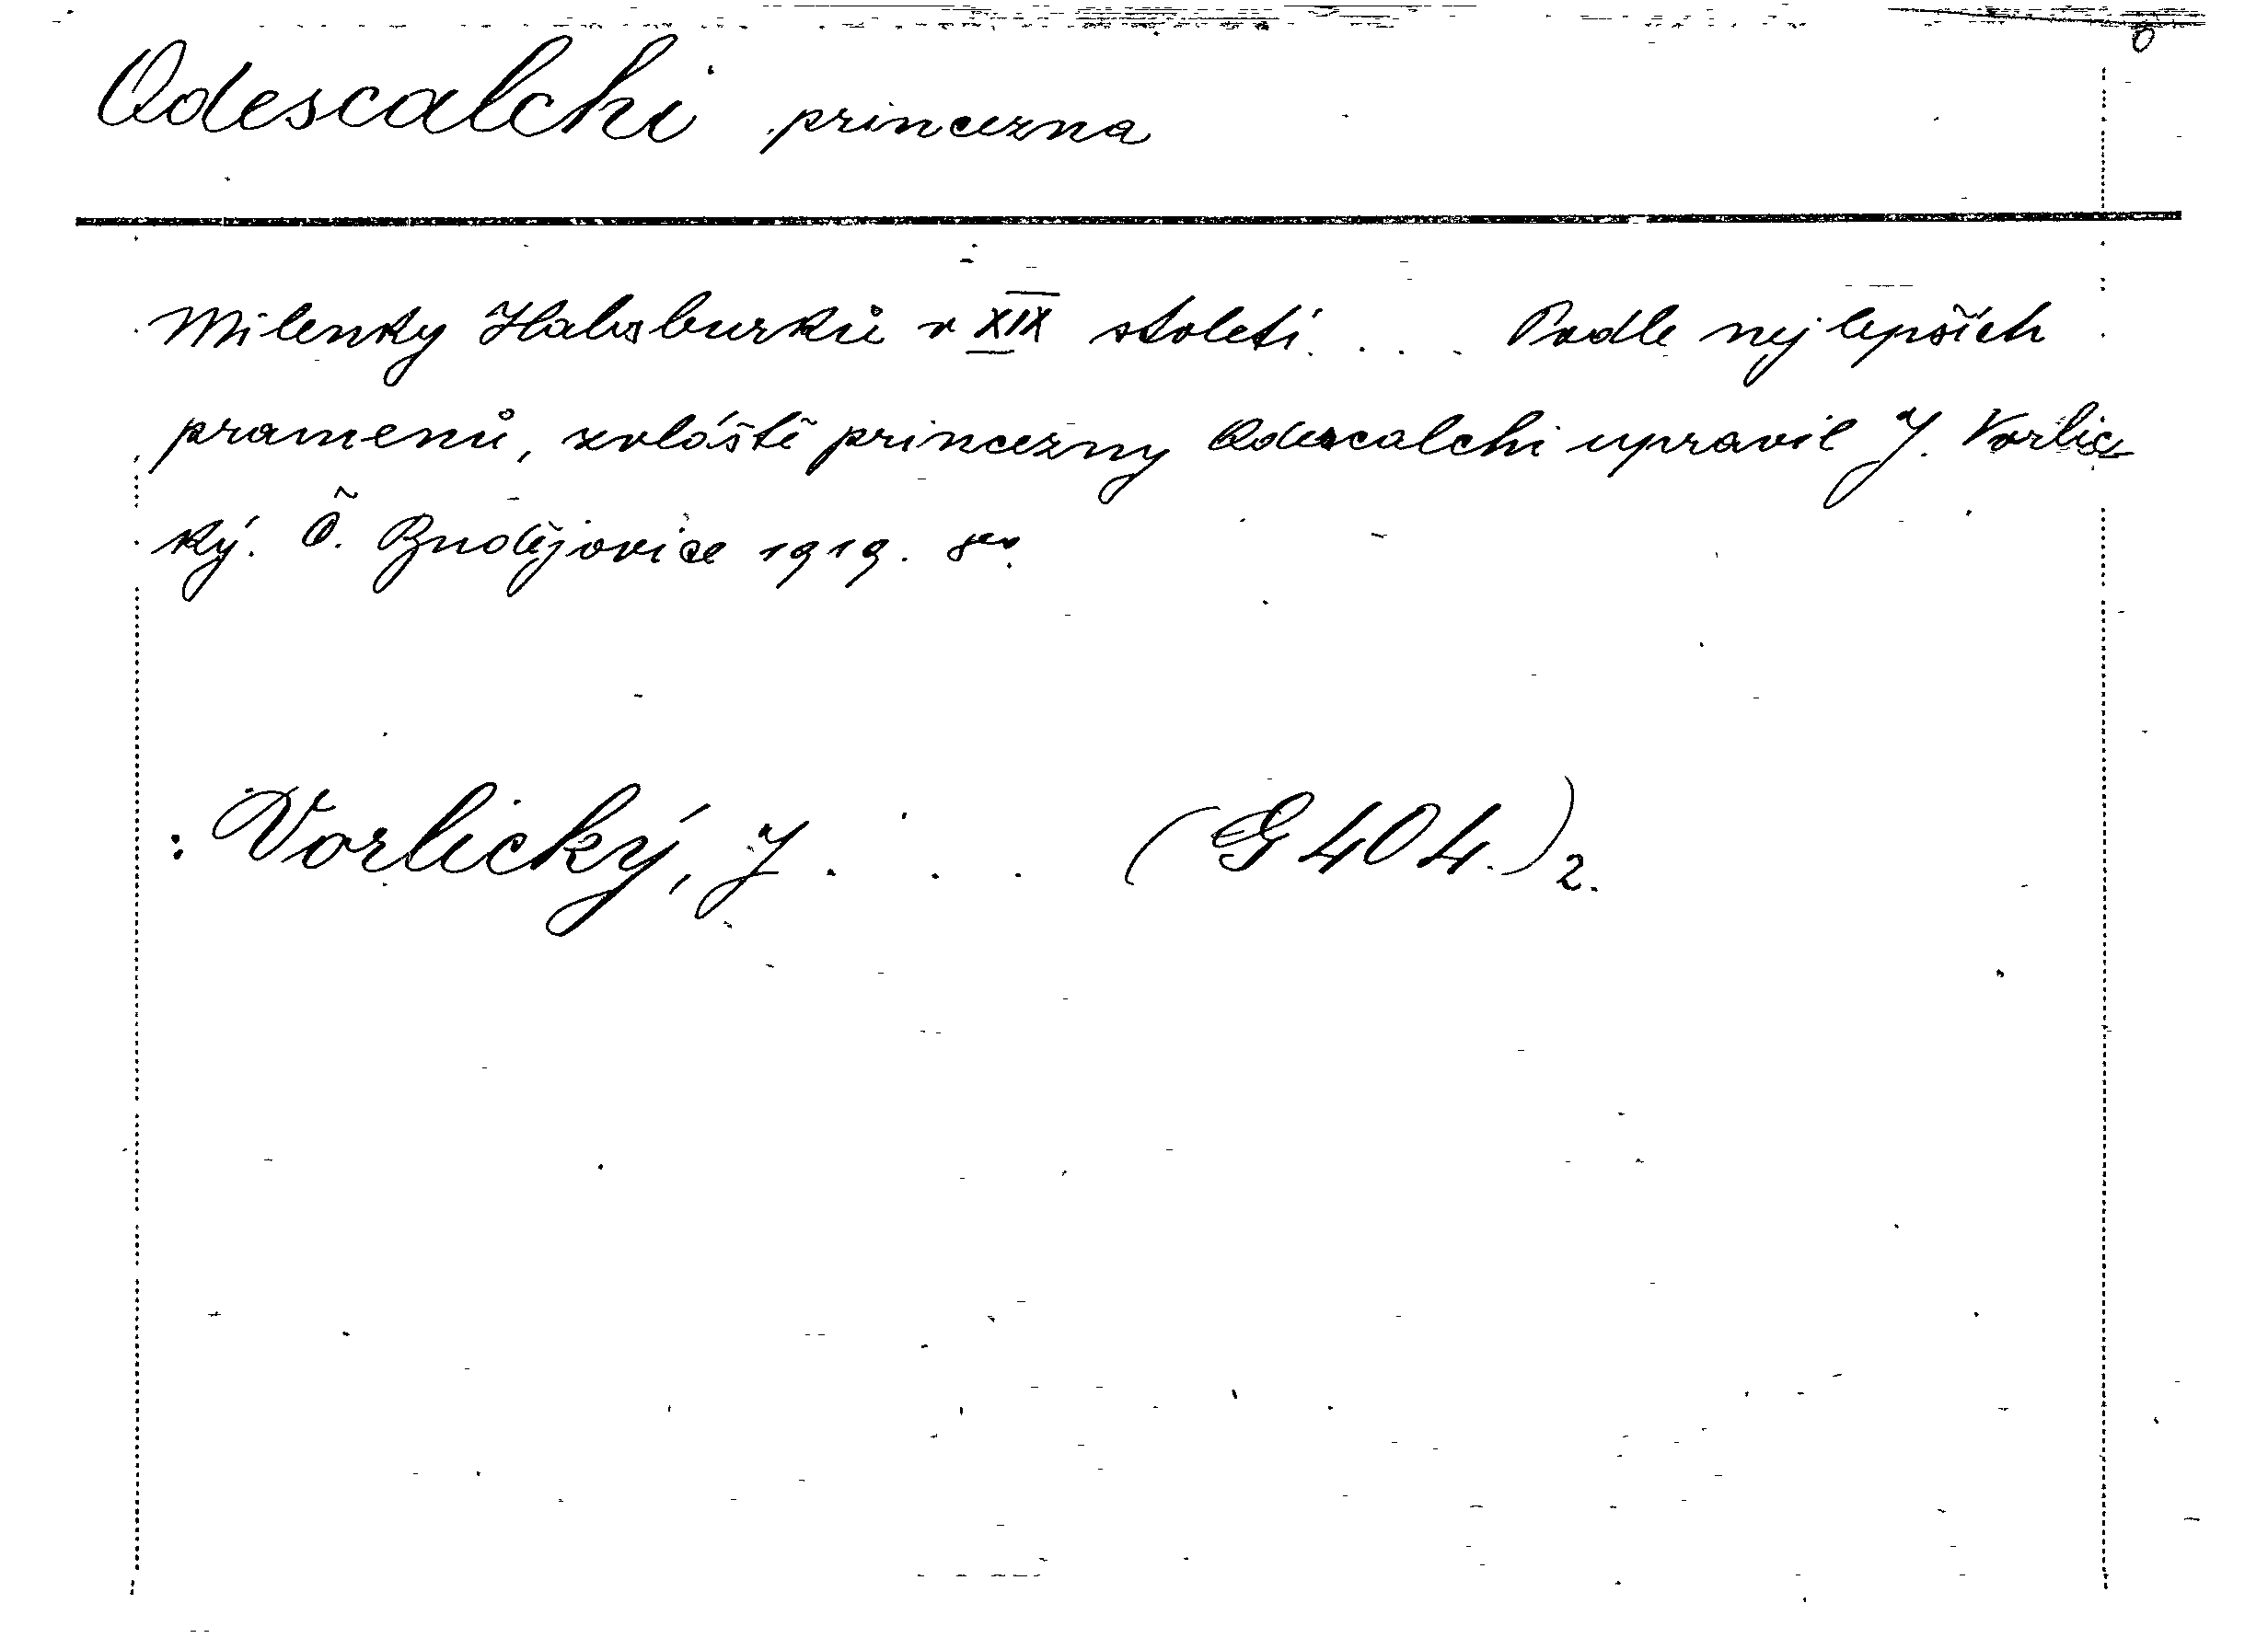 Odescalchi princezna
Milenky Habsburků v XIX století. . . . Podle nejlepších
pramenů, zvláště princezny Odescalchi upravil J. Vorlic-
ký. Č. Budějovice 1919. 8°.
: Vorlický, J. . . (G 404.) 2.